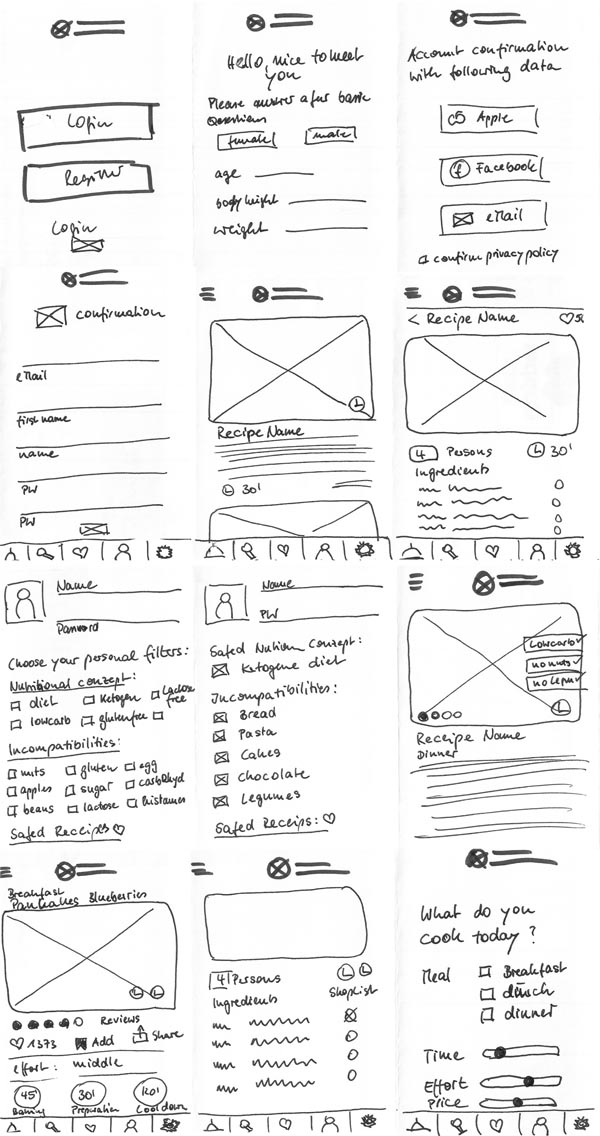 Login
Register
Login
Hello, nice to meet
you
Please answer a few basic
Questions
female male
age
body hight
weight
Account confirmation
with following data
Apple
f Facebook
eMail
confirm privacy policy
confirmation
eMail
first name
name
PW
PW
Recipe Name
30'
< Recipe Name
4 Persons 30'
Ingredients
Name
Password
Choose your personal filters:
Nutritional concept:
diet Ketogen Lactose
free
lowcarb glutenfree
Incompatibilities:
nuts gluten egg
apples sugar carbohyd
beans lactose histamen
Safed Receips
Name
PW
Safed Nution Concept:
Ketogene diet
Incompatibilities:
Bread
Pasta
Cakes
Chocolate
Legumes
Safed Receips:
Lowcarb
no nuts
Receipe Name
Dinner
Breakfast
Pancakes Blueberries
Reviews
1373 Add Share
effort: middle
45' 30'
Baking Preparation Cooldown
4 Persons
Ingredients Shoplist
What do you
cook today?
Meal Breakfast
dinner
Time
Effort
Price